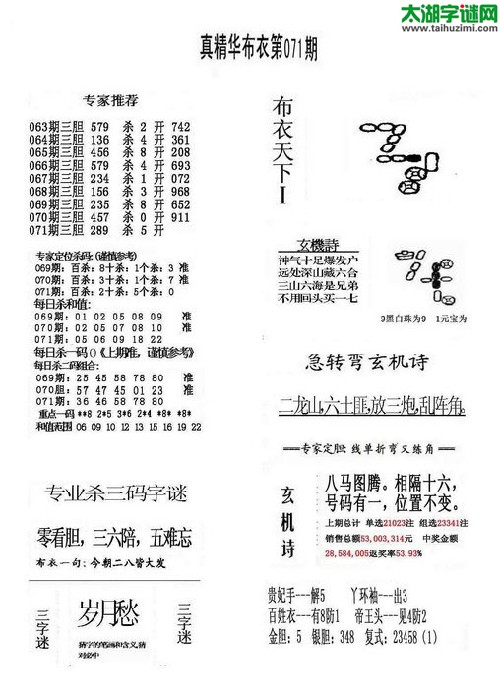 太湖字谜网
www.taihuzimi.com
真精华布衣第071期
专家推荐
063期三胆 579 杀 2 开 742
064期三胆 136 杀 4 开 361
065期三胆 456 杀 8 开 208
066期三胆 579 杀 4 开 693
067期三胆 234 杀 1 开 072
068期三胆 156 杀 3 开 968
069期三胆 235 杀 8 开 652
070期三胆 457 杀 0 开 911
071期三胆 289 杀 5 开
专家定位杀码:(谨慎参考)
069期: 百杀: 8十杀: 1个杀: 3 准
070期: 百杀: 3十杀: 1个杀: 7 准
071期: 百杀: 2十杀: 5个杀: 0
每日杀和值:
069期: 01 02 05 08 09 准
070期: 02 05 07 08 10 准
071期: 05 06 09 18 22
每日杀一码0《上期准, 谨慎参考》
每日杀二码组合:
069期: 25 45 58 78 80 准
070胆: 57 47 45 01 23 准
071期: 36 46 58 78 80
重点一码 **8 2*5 3*6 2*4 *8* *8*
和值范围 06 09 10 12 13 15 16 19 22
专业杀三码字谜
零看胆, 三六陪, 五难忘
布衣一句: 今朝二八皆大发
三字迷
岁月愁
猜字的笔画和含义,猜
对必中
三字迷
布衣天下I
玄機詩
沖气十足爆发户
远处深山藏六合
三山六海是兄弟
不用回头买一七
9黑白珠为9 1元宝为
急转弯玄机诗
二龙山,六土匪,放三炮,乱阵角。
===专家定胆 线单折弯又练角===
玄机诗
八马图腾。相隔十六,
号码有一, 位置不变。
上期总计 单选21023注 组选23341注
销售总额53,003,314元 中奖金额
28,584,005返奖率53.93%
贵妃手---解5 丫环袖---出3
百姓衣---有8防1 帝王头---见4防2
金胆: 5 银胆: 348 复式: 23458 (1)